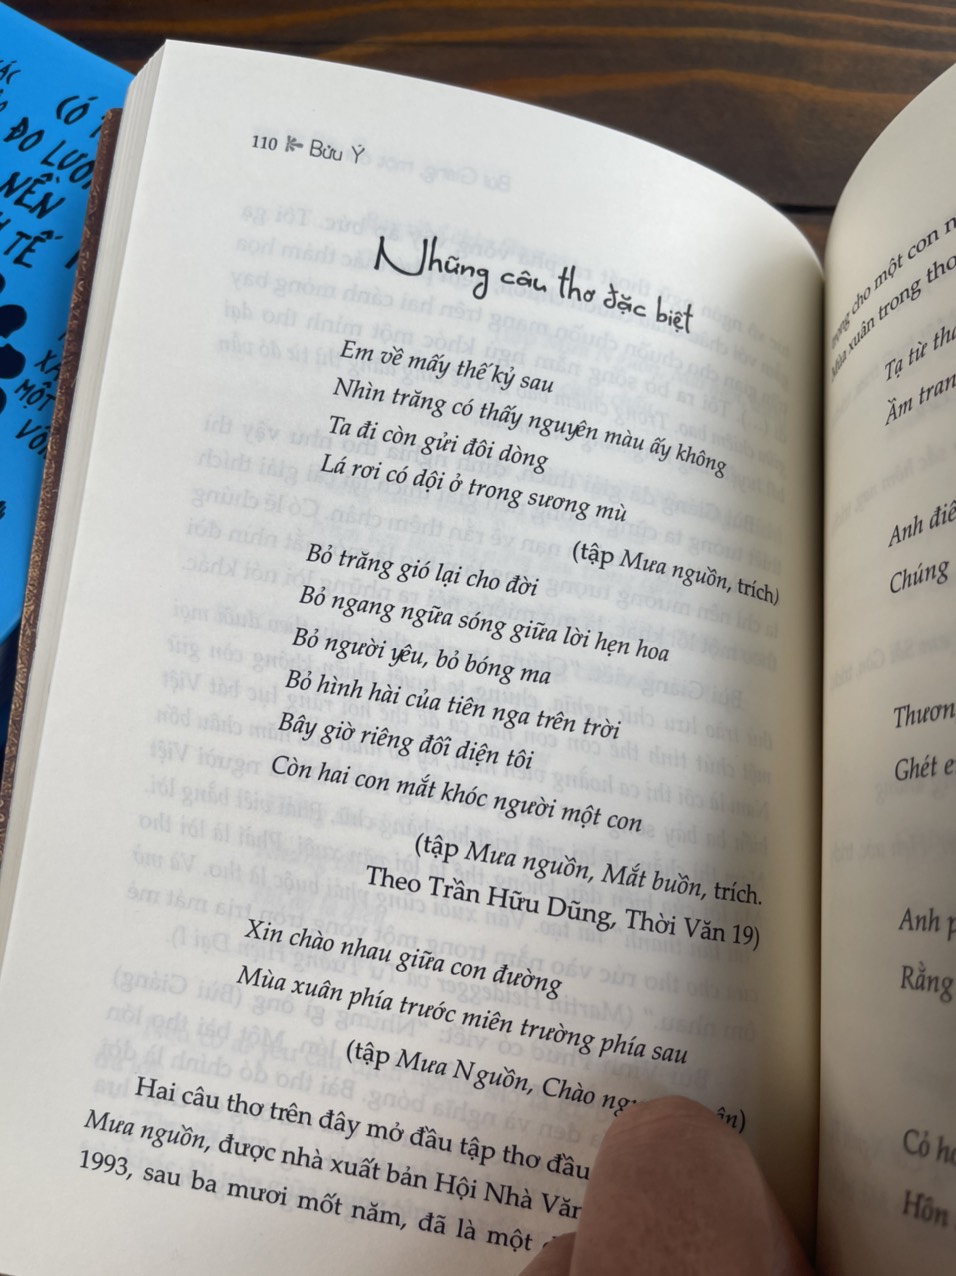 CÓ
ĐO LƯỜN
NỀN
TẾ
MỘT
110 Bửu Ý
Những câu thơ đặc biệt
Em về mấy thế kỷ sau
Nhìn trăng có thấy nguyên màu ấy không
Ta đi còn gửi đôi dòng
Lá rơi có dội ở trong sương mù
(tập Mưa nguồn, trích)
Bỏ trăng gió lại cho đời
Bỏ ngang ngữa sóng giữa lời hẹn hoa
Bỏ người yêu, bỏ bóng ma
Bỏ hình hài của tiên nga trên trời
Bây giờ riêng đối diện tôi
Còn hai con mắt khóc người một con
(tập Mưa nguồn, Mắt buồn, trích.
Theo Trần Hữu Dũng, Thời Văn 19)
Xin chào nhau giữa con đường
Mùa xuân phía trước miên trường phía sau
(tập Mưa Nguồn, Chào
Hai câu thơ trên đây mở đầu tập thơ đầu
Mưa nguồn, được nhà xuất bản Hội Nhà Văn
1993, sau ba mươi mốt năm, đã là một
cho một con
Mùa xuân trong thơ
Tạ từ
Ầm tran
Anh
Chúng
Thươn
Ghét
Anh
Rằng
Cỏ
Hôn